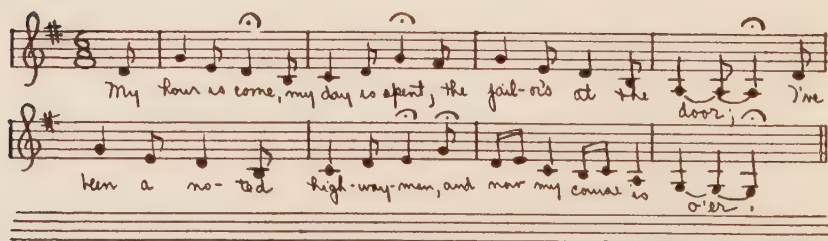 My hour is come, my day is spent, the jail-or's at the door; I've
been a no-ted high-way-man, and now my course is o'er.